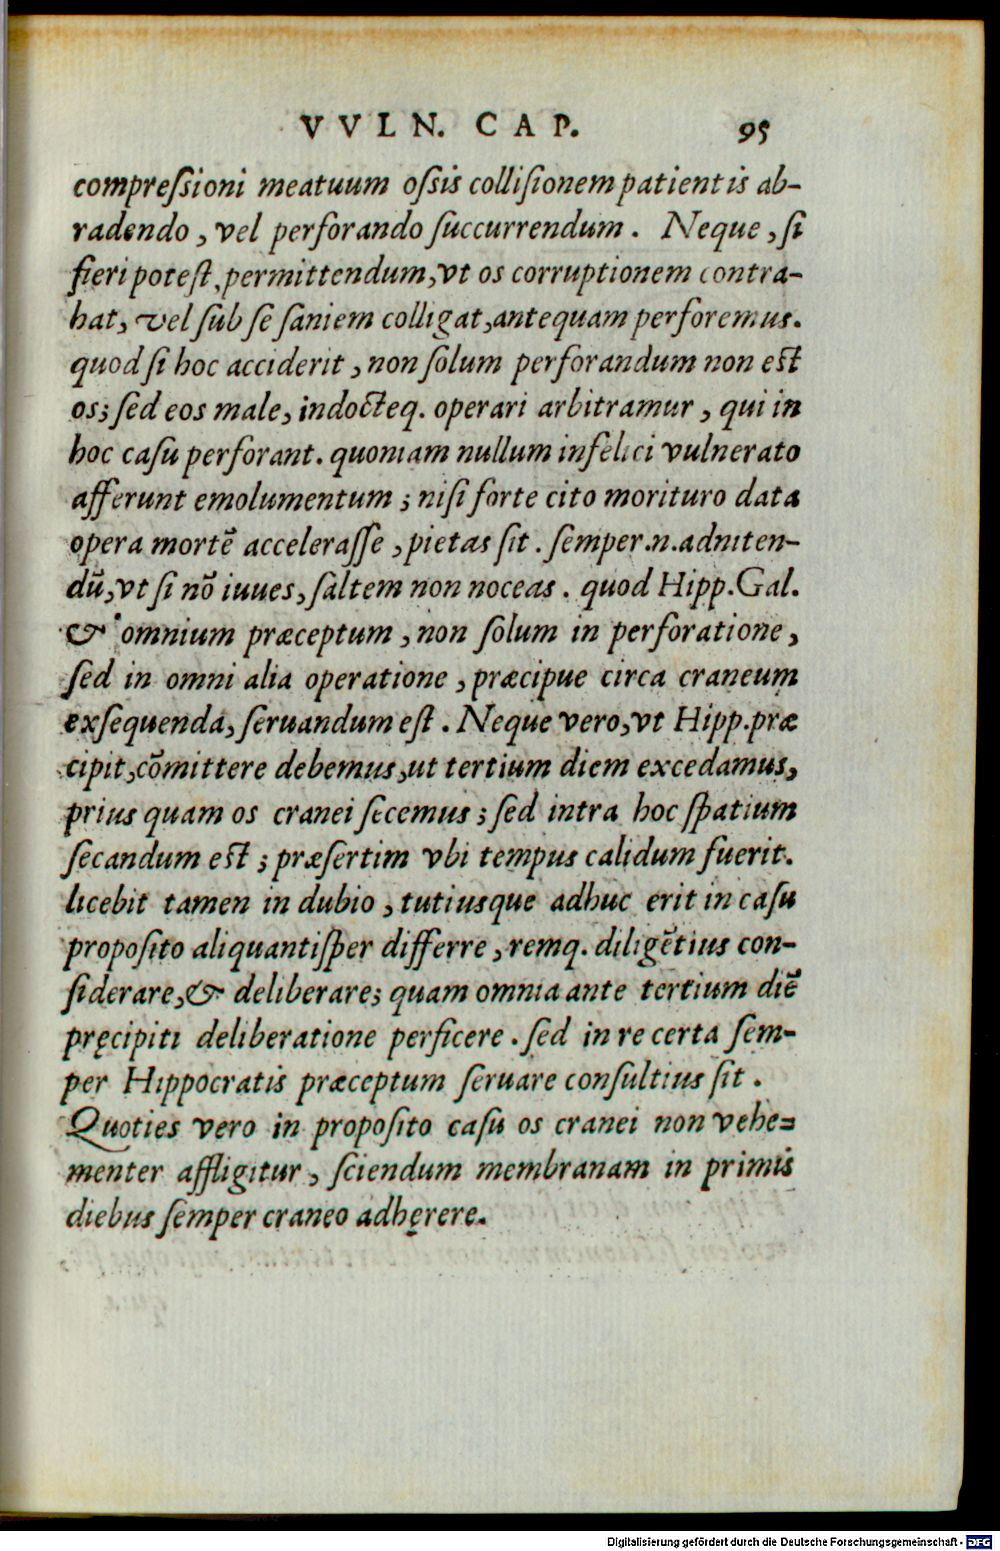 VVLN. CAP. 95
compreſsioni meatuum oſsis colliſionem patientis ab-
radendo, vel perforando ſuccurrendum. Neque, ſi
fieri poteſt, permittendum, vt os corruptionem contra-
hat, vel ſub ſe ſaniem colligat, antequam perforemus.
quod ſi hoc acciderit, non ſolum perforandum non eſt
os; ſed eos male, indocteq. operari arbitramur, qui in
hoc caſu perforant. quoniam nullum infelici vulnerato
afferunt emolumentum; niſi forte cito morituro data
opera mortē acceleraſſe, pietas ſit. ſemper.n.adniten-
dū, vt ſi nō iuues, ſaltem non noceas. quod Hipp. Gal.
& omnium præceptum, non ſolum in perforatione,
ſed in omni alia operatione, præcipue circa craneum
exſequenda, ſeruandum eſt. Neque vero, vt Hipp. præ
cipit, cōmittere debemus, ut tertium diem excedamus,
prius quam os cranei ſecemus; ſed intra hoc ſpatium
ſecandum eſt; præſertim vbi tempus calidum fuerit.
licebit tamen in dubio, tutiusque adhuc erit in caſu
propoſito aliquantiſper differre, remq. diligētius con-
ſiderare, & deliberare; quam omnia ante tertium diē
pręcipiti deliberatione perficere. ſed in re certa ſem-
per Hippocratis præceptum ſeruare conſultius ſit.
Quoties vero in propoſito caſu os cranei non vehe=
menter affligitur, ſciendum membranam in primis
diebus ſemper craneo adhęrere.
Digitalisierung gefördert durch die Deutsche Forschungsgemeinschaft - DFG